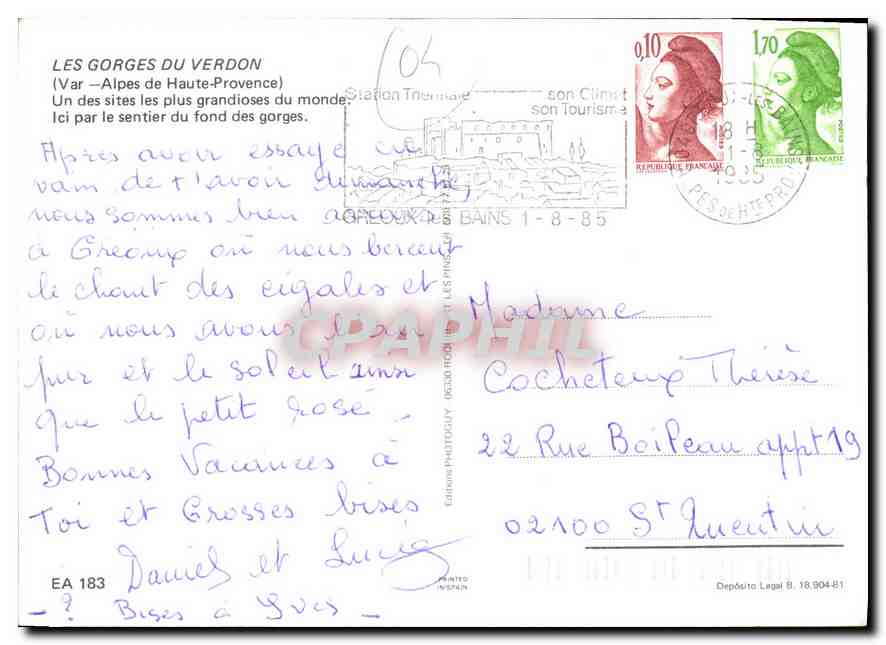 LES GORGES DU VERDON
(Var —Alpes de Haute-Provence)
Un des sites les plus grandioses du monde.
Ici par le sentier du fond des gorges.
04
Station Thermale son Climat
son Tourisme
GREOUX LES BAINS 1-8-85
0,10
REPUBLIQUE FRANÇAISE
1,70
REPUBLIQUE FRANÇAISE
18 H
1-8
1985
ALPES DE Hte PROV
Après avoir essayé en
vain de t'avoir dimanche,
nous sommes bien arrivés
à Gréoux où nous bercent
le chant des cigales et
où nous avons l'air
pur et le soleil ainsi
que le petit rosé.
Bonnes Vacances à
Toi et Grosses bises
Daniel et Lucie
- ? Bises à Yves -
Madame
Cocheteux Thérèse
22 Rue Boileau appt 19
02100 St Quentin
Editions PHOTOGUY - 06330 ROQUEFORT LES PINS
CPAPHIL
EA 183
PRINTED
IN SPAIN
Depósito Legal B. 18.904-81